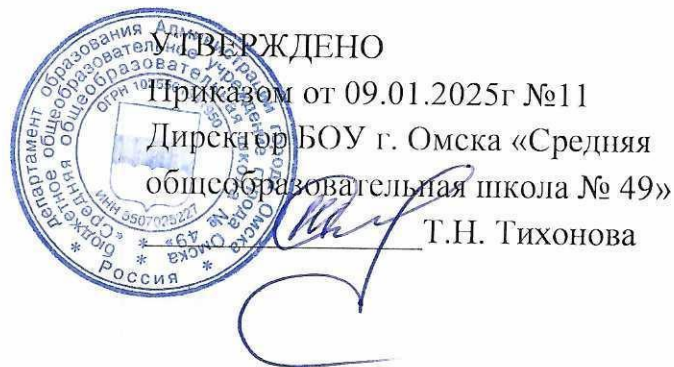 УТВЕРЖДЕНО
Приказом от 09.01.2025г №11
Директор БОУ г. Омска «Средняя
общеобразовательная школа № 49»
Т.Н. Тихонова
департамент образования Администрации города Омска
бюджетное общеобразовательное учреждение города Омска
«Средняя общеобразовательная школа № 49»
ОГРН
ИНН 5507025227
* Россия *